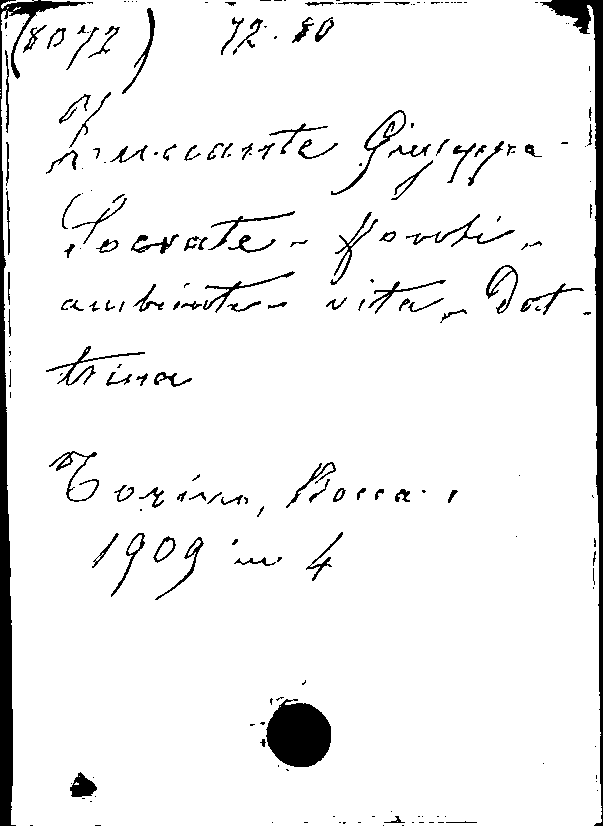 (8072) 72.80
Zuccante Giuseppe
Socrate - fonti -
ambiente - vita - Dot-
trina
Torino, Bocca.
1909 in 4